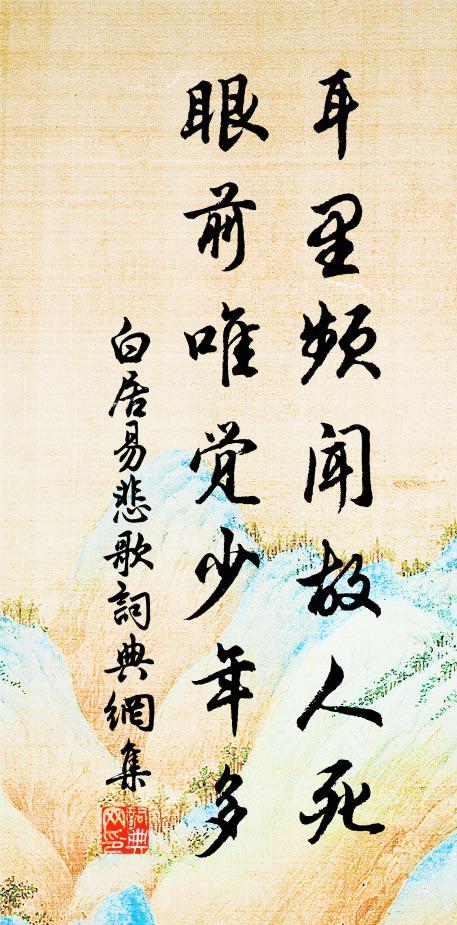 耳里频闻故人死
眼前唯觉少年多
白居易悲歌詞典網集
詞典
网印